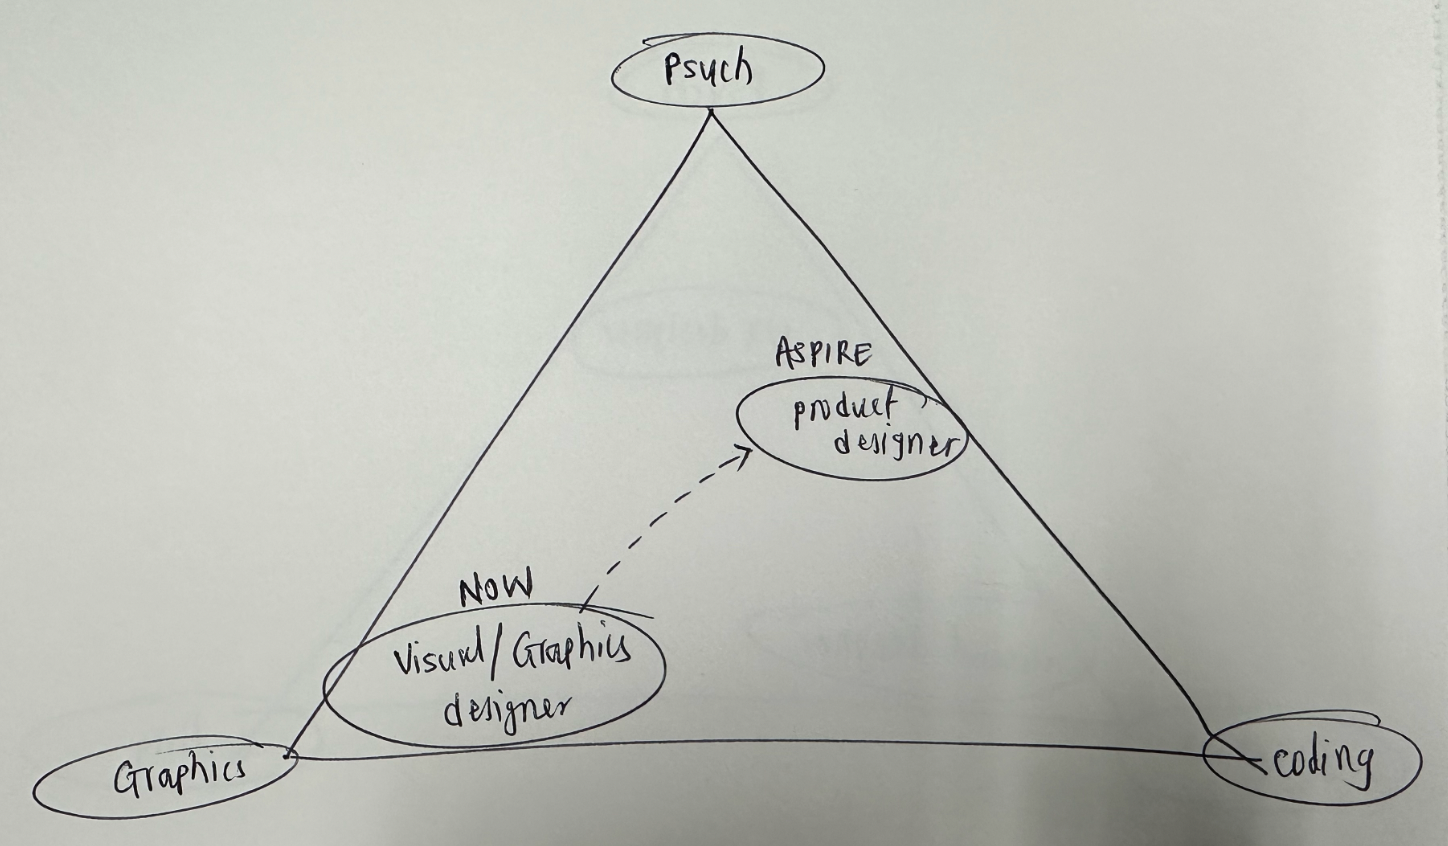 Psych
ASPIRE
product
designer
NOW
Visual/Graphics
designer
Graphics
coding